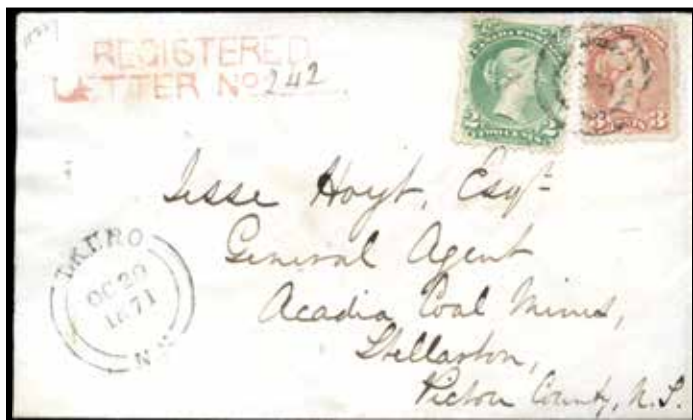 REGISTERED
LETTER No 242
CANADA POSTAGE
2 TWO CENTS 2
3 CENTS 3
Jesse Hoyt, Esqr
General Agent
Acadia Coal Mines,
Stellarton,
Pictou County, N.S.
TRURO
OC 20
1871
N.S